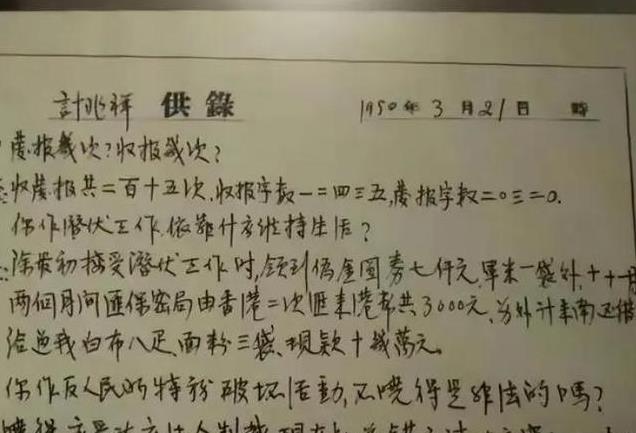 計兆祥 供錄 1950年3月21日 時
發报幾次?收报幾次?
收發报共二百十五次,收报字數一二四三五,發报字數二〇三二〇.
你作潛伏工作,依靠什么維持生活?
除最初接受潛伏工作時,領到偽金圓券七仟元,軍米一袋外,十十一
兩個月间匯保密局由香港二次匯來港幣共3000元,另外计采南还借
给过我白布八疋,面粉三袋,現款十幾萬元.
你作反人民的特務破坏活動,不曉得是非法的嗎?
曉得